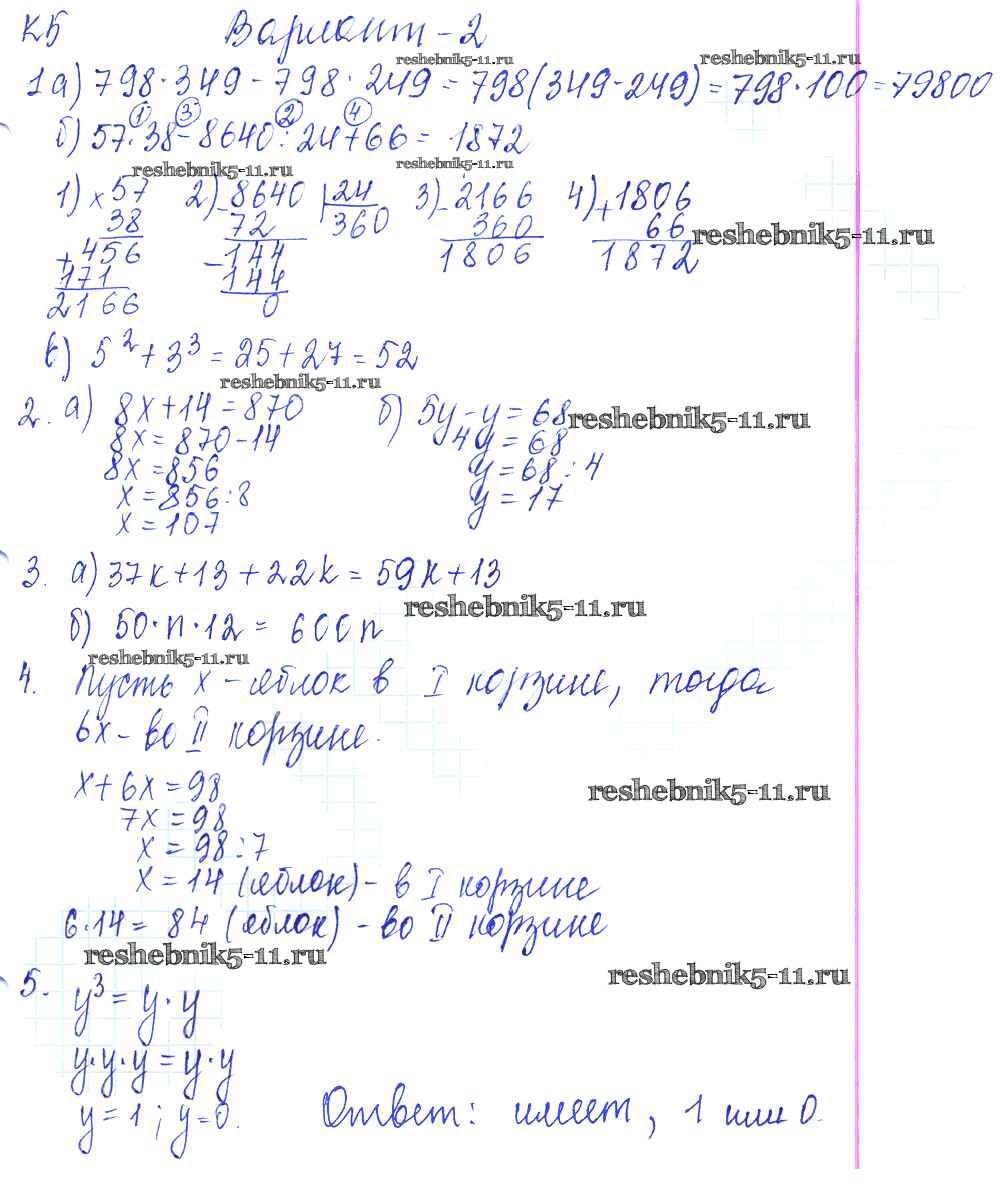 К5 Вариант-2
reshebnik5-11.ru reshebnik5-11.ru
1а) 798·349-798·249=798(349-249)=798·100=79800
① ③ ② ④
б) 57·38-8640:24+66=1872
reshebnik5-11.ru reshebnik5-11.ru
1) ×57 2) -8640 |24 3) -2166 4) +1806
38 72 360 360 66 reshebnik5-11.ru
+456 -144 1806 1872
171 144
2166 0
в) 5²+3³=25+27=52
reshebnik5-11.ru
2. а) 8х+14=870 б) 5у-у=68 reshebnik5-11.ru
8х=870-14 4у=68
8х=856 у=68:4
х=856:8 у=17
х=107
3. а) 37к+13+22k=59к+13
reshebnik5-11.ru
б) 50·n·12=600n
reshebnik5-11.ru
4. Пусть х-яблок в I корзине, тогда
6х-во II корзине.
х+6х=98 reshebnik5-11.ru
7х=98
х=98:7
х=14 (яблок)-в I корзине
6·14=84 (яблок)-во II корзине
reshebnik5-11.ru reshebnik5-11.ru
5. у³=у·у
у·у·у=у·у
у=1; у=0. Ответ: имеет, 1 или 0.